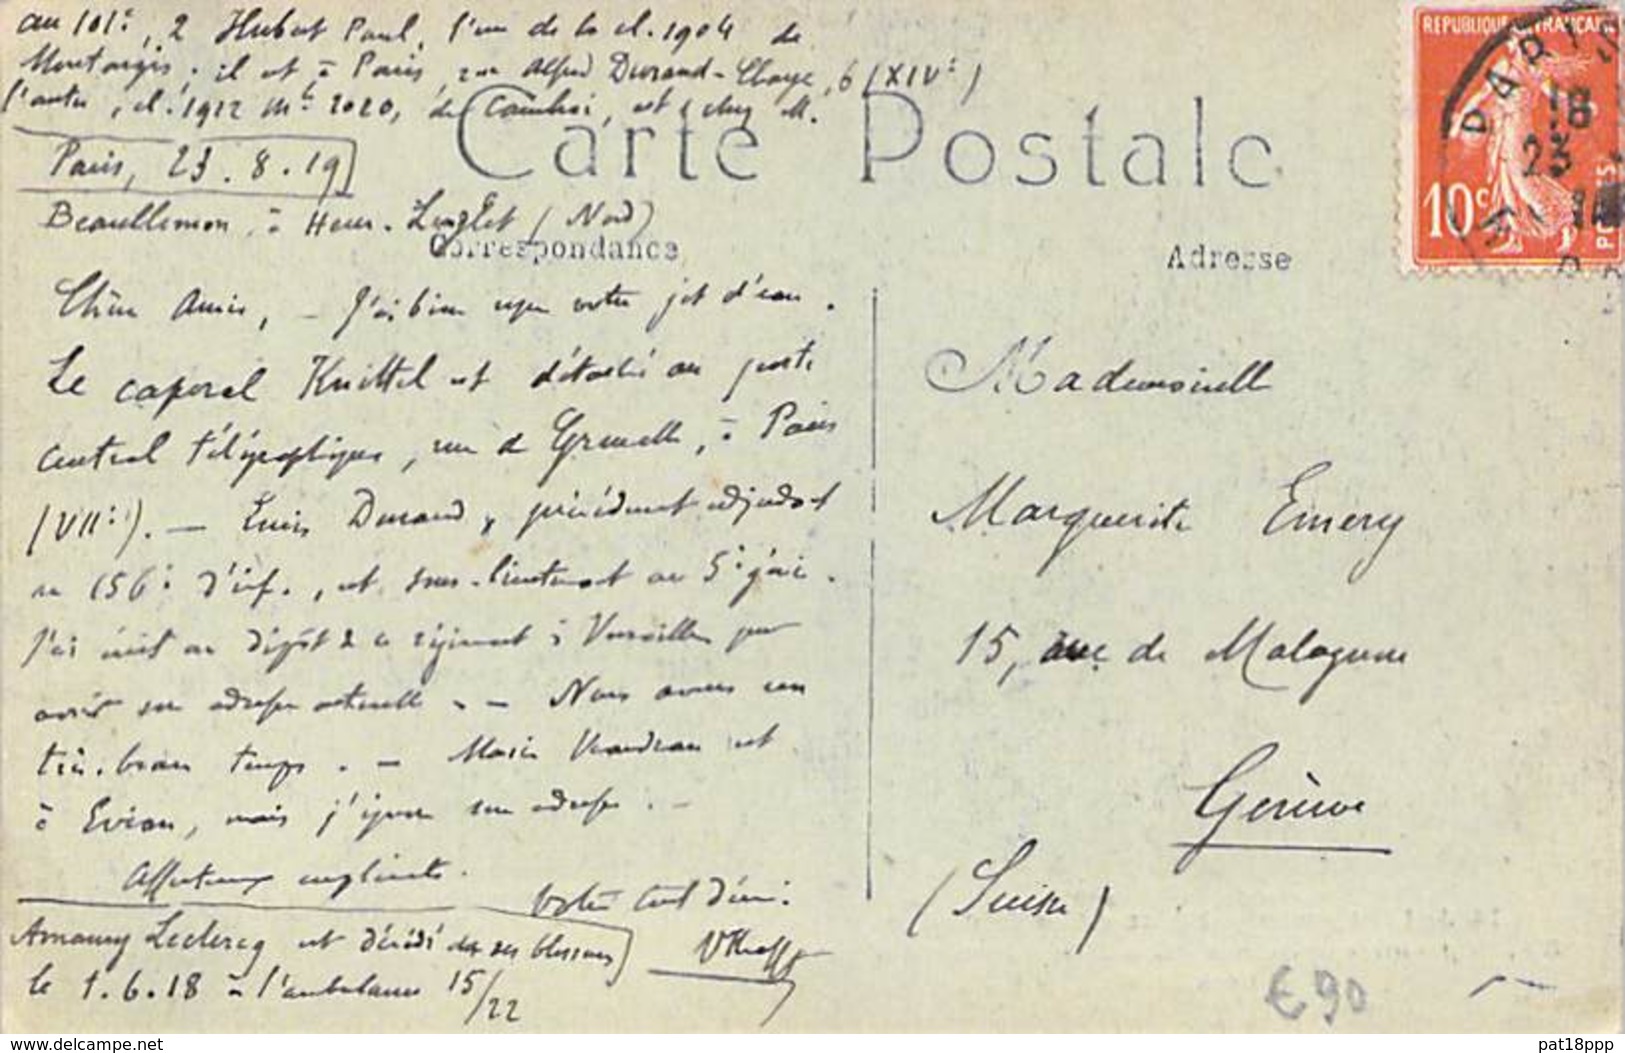 au 101e, 2 Hubert Paul, l'un de la cl. 1904 de
Montargis. il est à Paris, rue Alfred Durand-Claye, 6 (XIVe)
l'autre, cl. 1912 Mle 2020, de Cambrai, est chez M.
Carte Postale
Paris, 23.8.19
à Heur-Lenglet (Nord)
Correspondance
Adresse
REPUBLIQUE FRANÇAISE
10c
POSTES
PARIS
18
23
Chère Amie, – J'ai bien reçu votre jet d'eau.
Le caporal Knittel est détaché au poste
central télégraphique, rue de Grenelle, à Paris
(VIIe). – Louis Durand, précédemment adjudant
au 156e d'inf., est sous-lieutenant au 5e génie.
J'ai écrit au dépôt de ce régiment à Versailles pour
avoir son adresse actuelle. – Nous avons un
très beau temps. – Marie est
à Evian, mais j'ignore son adresse. –
Affectueux compliments.
Votre tout dévoué:
Amaury Leclercq est décédé de ses blessures
le 1.6.18 à l'ambulance 15/22
Mademoiselle
Marguerite Emery
15, ave de Malagnou
Genève
(Suisse)
€90
https://www.delcampe.net
pat18ppp